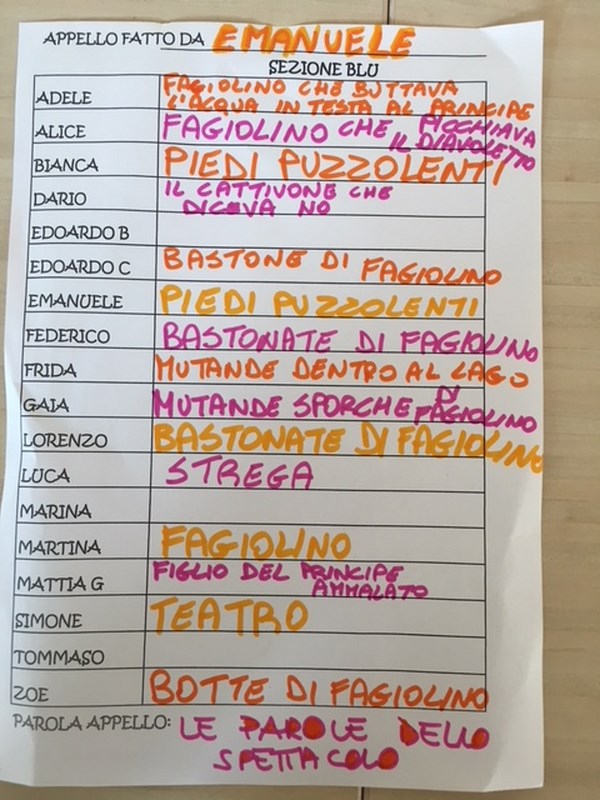 APPELLO FATTO DA EMANUELE
SEZIONE BLU
ADELE FAGIOLINO CHE BUTTAVA
L'ACQUA IN TESTA AL PRINCIPE
ALICE FAGIOLINO CHE PICCHIAVA
IL DIAVOLETTO
BIANCA PIEDI PUZZOLENTI
DARIO IL CATTIVONE CHE
DICEVA NO
EDOARDO B
EDOARDO C BASTONE DI FAGIOLINO
EMANUELE PIEDI PUZZOLENTI
FEDERICO BASTONATE DI FAGIOLINO
FRIDA MUTANDE DENTRO AL LAGO
GAIA MUTANDE SPORCHE DI
FAGIOLINO
LORENZO BASTONATE DI FAGIOLINO
LUCA STREGA
MARINA
MARTINA FAGIOLINO
MATTIA G FIGLIO DEL PRINCIPE
AMMALATO
SIMONE TEATRO
TOMMASO
ZOE BOTTE DI FAGIOLINO
PAROLA APPELLO: LE PAROLE DELLO
SPETTACOLO